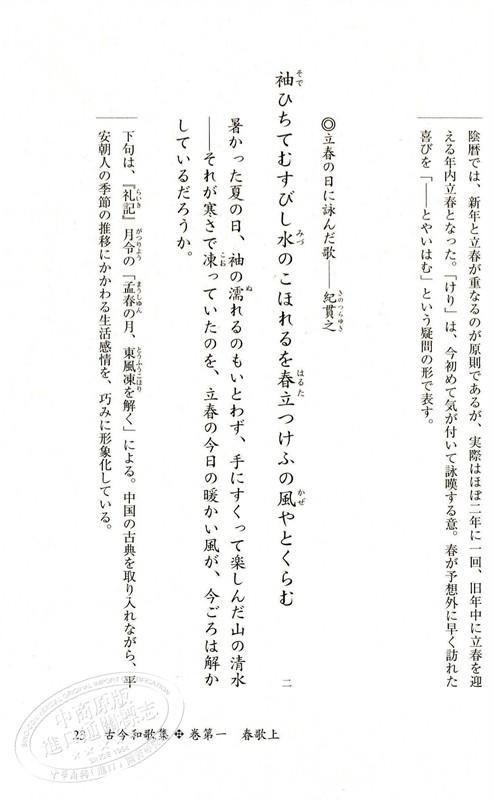 陰暦では、新年と立春が重なるのが原則であるが、実際はほぼ二年に一回、旧年中に立春を迎
える年内立春となった。「けり」は、今初めて気が付いて詠嘆する意。春が予想外に早く訪れた
喜びを「――とやいはむ」という疑問の形で表す。
◎立春の日に詠んだ歌――紀貫之
きのつらゆき
袖ひちてむすびし水のこほれるを春立つけふの風やとくらむ
そで みづ はるた かぜ
二
暑かった夏の日、袖の濡れるのもいとわず、手にすくって楽しんだ山の清水
ぬ
――それが寒さで凍っていたのを、立春の今日の暖かい風が、今ごろは解か
こお
しているだろうか。
下句は、『礼記』月令の「孟春の月、東風凍を解く」による。中国の古典を取り入れながら、平
らいき がつりょう もうしゅん とうふうこほり
安朝人の季節の推移にかかわる生活感情を、巧みに形象化している。
古今和歌集 ❖ 巻第一 春歌上
中商原版
進口通關標志